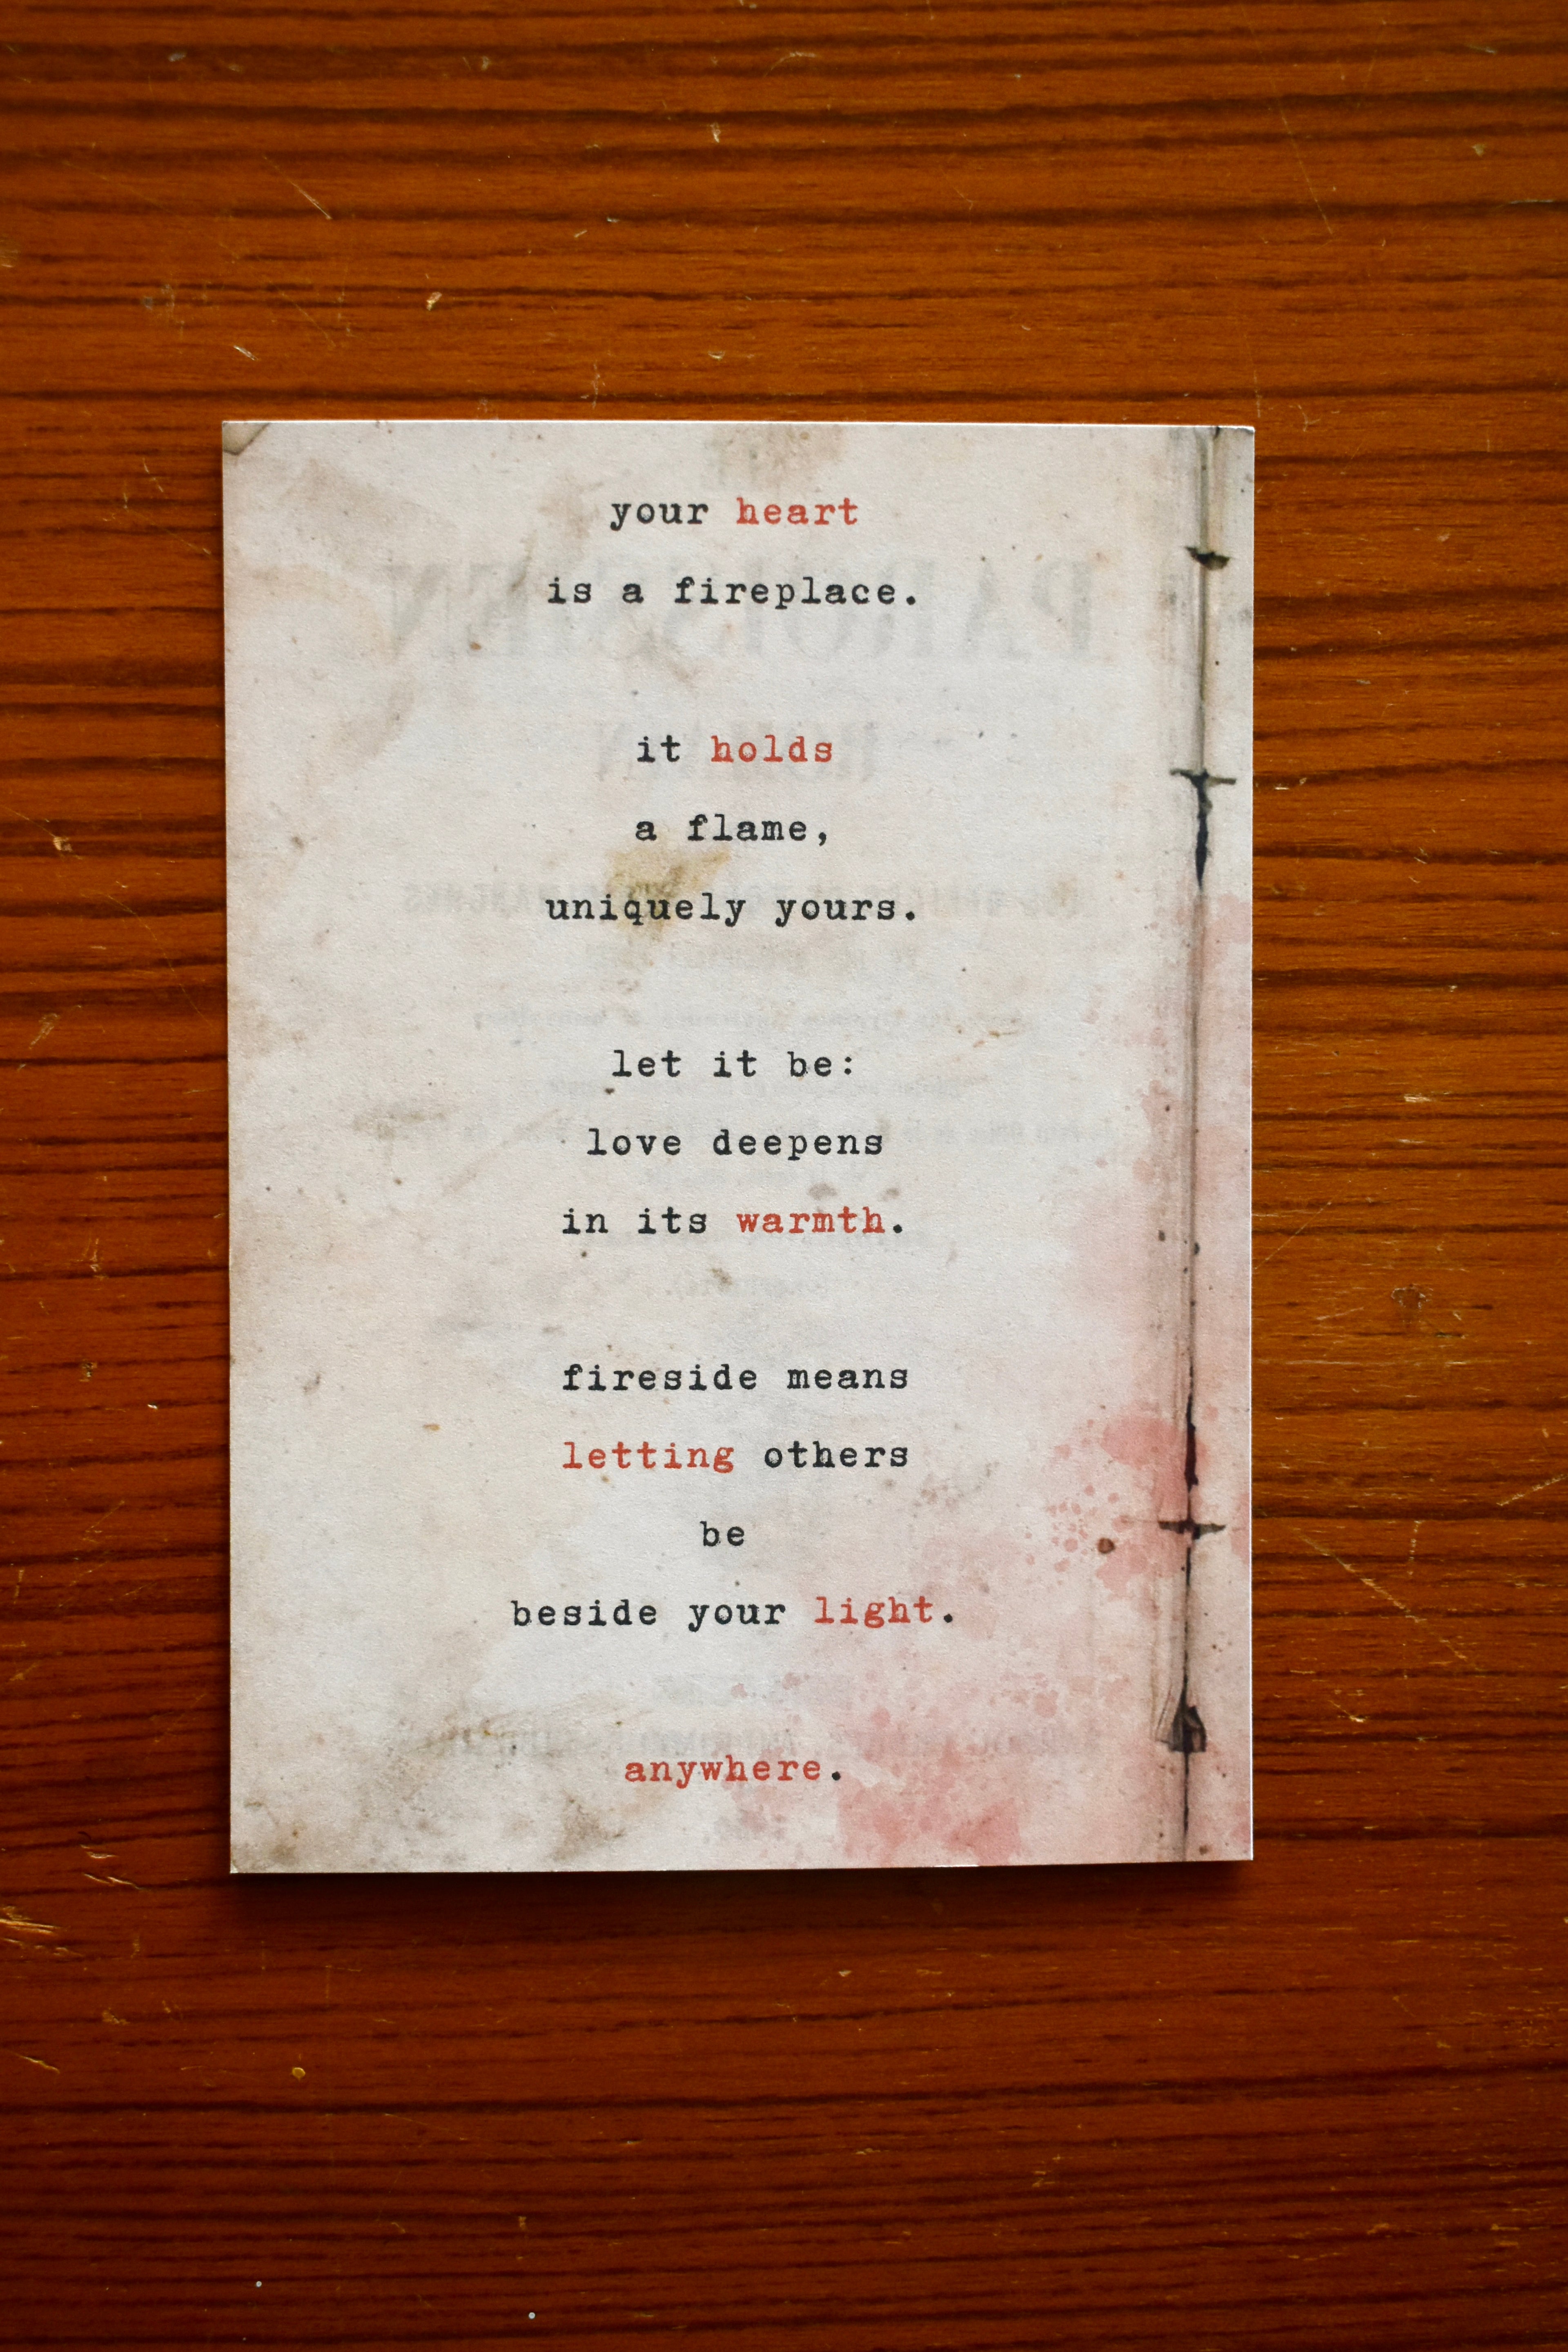 your heart
is a fireplace.
it holds
a flame,
uniquely yours.
let it be:
love deepens
in its warmth.
fireside means
letting others
be
beside your light.
anywhere.